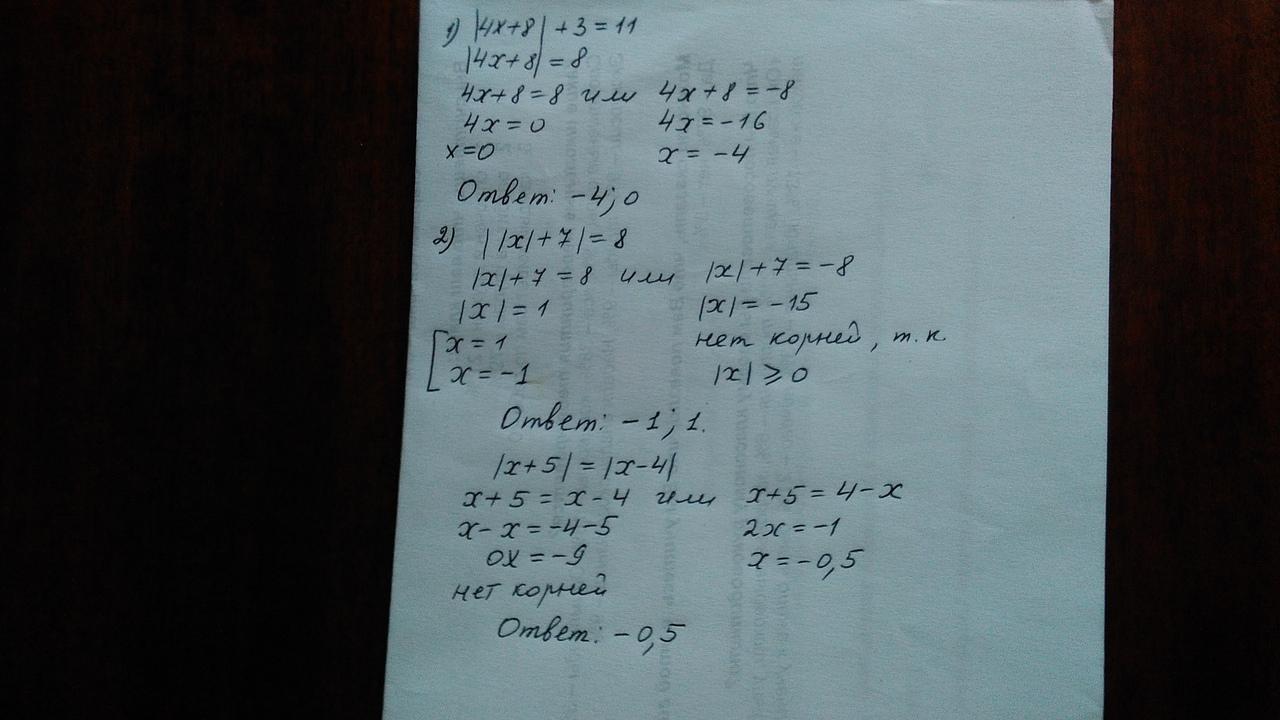 1) |4x+8| + 3 = 11
|4x+8| = 8
4x+8=8 или 4x+8=-8
4x=0 4x=-16
x=0 x=-4
Ответ: -4; 0
2) ||x|+7|=8
|x|+7=8 или |x|+7=-8
|x|=1 |x|=-15
[x=1 нет корней, т.к.
x=-1 |x|⩾0
Ответ: -1; 1.
|x+5|=|x-4|
x+5=x-4 или x+5=4-x
x-x=-4-5 2x=-1
0x=-9 x=-0,5
нет корней
Ответ: -0,5